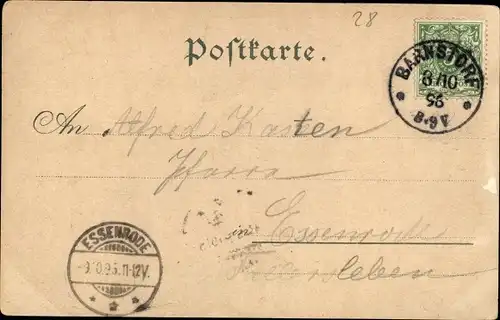 28
Postkarte.
BARNSTORF
8/10
98
8-9V
An Alfred Kasten
Pfarre
in Essenrode
ESSENRODE
-9.10.98.11-12V.